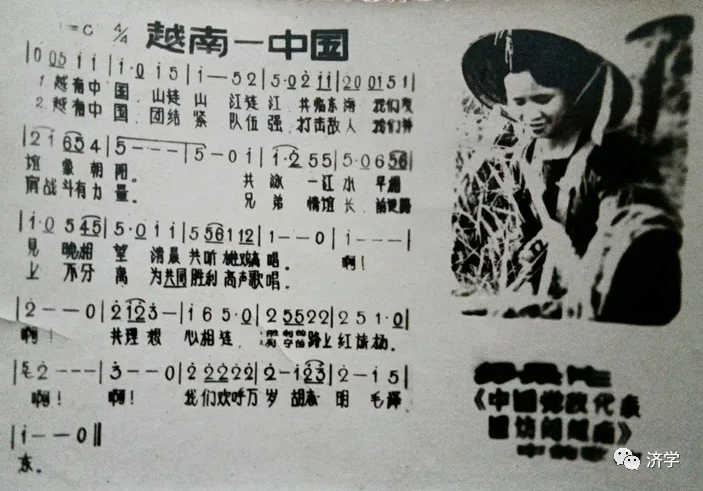 1=C 4/4 越南—中国
|0 05 i i|i·0 i 5|i — 5 2|5·0 2 i i|2 0 0i 5 i|
1.越南中国,山连山 江连江,共临东海 我们友
2.越南中国,团结紧 队伍强,打击敌人 我们并
|2 i 65 4|5 - - -|5 - 0 i|i·2 5 5|5·0 6 56|
谊象朝阳。 共泳一江水 早相
肩战斗有力量。 兄弟情谊长,
|i·0 5 45|5·0 i i|5 56 i i2|i - - 0|i - - -|
见 晚相望 清晨共听雄鸡高唱。 啊!
上 不分离 为共同胜利高声歌唱。
|2 - - 0|2 i2 3 -|i 6 5·0|2 55 2 2|2 5 i·0|
啊! 共理想 心相连, 路上红旗扬。
2 - - -|3 - - 0|2 22 2 2|2 - i 23|2 - i 5|
啊! 啊! 我们欢呼万岁 胡志明 毛泽
|i - - 0‖
东。
《中国党政代表
团访问越南》
济学